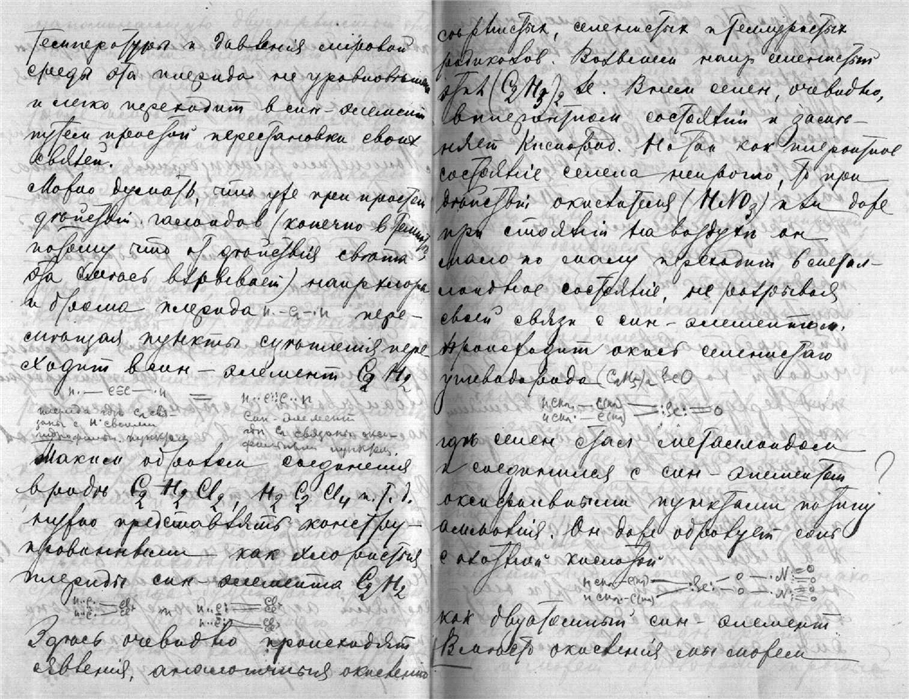 температуры и давления мировой
среды эта плерида не уравновешена
и легко переходит в син-элемент
путем простой перестановки своих
связей.
Можно думать, что уже при простом
действии галоидов (конечно в темноте
потому что от действия света
эта смесь взрывает) напр. хлора
и брома плерида H··—C≡C—··H пере-
мещая пункты сцепления пере
ходит в син-элемент C2 H2
H··—C≡C—··H = H··C⋮C··H
син-элемент
Таким образом соединения
вроде C2 H2 Cl2, H2 C2 Cl4 и.т.д.
нужно представлять констру-
ированными как хлористыя
плериды син-элемента C2 H2
H··C
или
Здесь очевидно происходят
явления, аналогичныя окислению
сернистых, селенистых и теллуристых
радикалов. Возьмем напр. селенистый
этил (C2 H5)2 Se. В нем селен, очевидно,
в состоянии и засло-
няет кислород. Но так как плероитное
состояние селена непрочно, то при
действии окислителя (HNO3) или даже
при стоянии на воздухе он
мало по малу переходит в метал-
лоидное состояние, не разрывая
своей связи с син-элементом.
Происходит окись селенистаго
углеводорода (C2H5)2 SeO
Se: = O
где селен стал металлоидом
и соединился с син-элементом
оксифильными пунктами
?
Он даже образует соль
с азотной кислотой
Se: — O — N = O
как двуатомный син-элемент
Вместо окисления мы можем